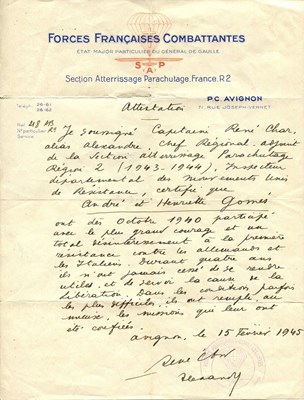 FORCES FRANÇAISES COMBATTANTES
ÉTAT MAJOR PARTICULIER DU GÉNÉRAL DE GAULLE
S A P
Section Atterrissage Parachutage, France, R2
P.C. AVIGNON
71, RUE JOSEPH-VERNET
Attestation
Je soussigné Capitaine René Char,
alias Alexandre, Chef Régional adjoint
de la Section atterrissage Parachutage
Région 2 (1943-1944), Inspecteur
départemental des Mouvements Unis
de Résistance, certifie que
André et Henriette Gomès
ont dès Octobre 1940 participé
avec le plus grand courage et un
total désintéressement à la première
résistance contre les allemands et
les Italiens. Durant quatre ans
ils n'ont jamais cessé de se rendre
utiles et de servir la cause de la
Libération. Dans les conditions parfois
les plus difficiles, ils ont rempli, au
mieux, les missions qui leur ont
été confiées.
Avignon, le 15 Février 1945
René Char
Alexandre